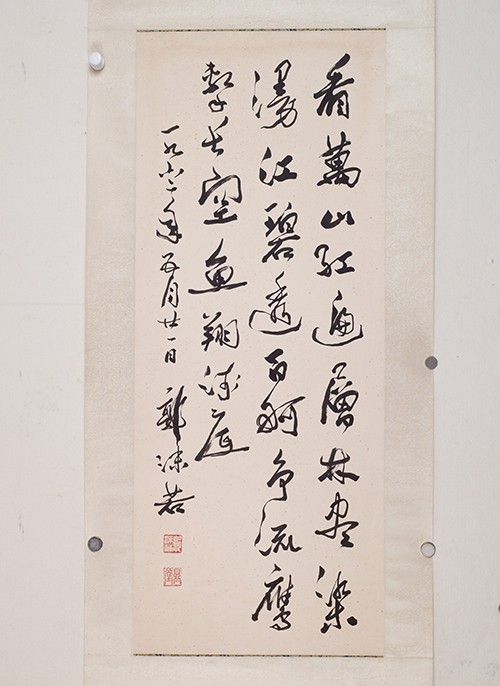 看萬山红遍層林盡染
漫江碧透百舸争流鹰
擊长空魚翔浅底
一九六二年五月廿一日 郭沫若